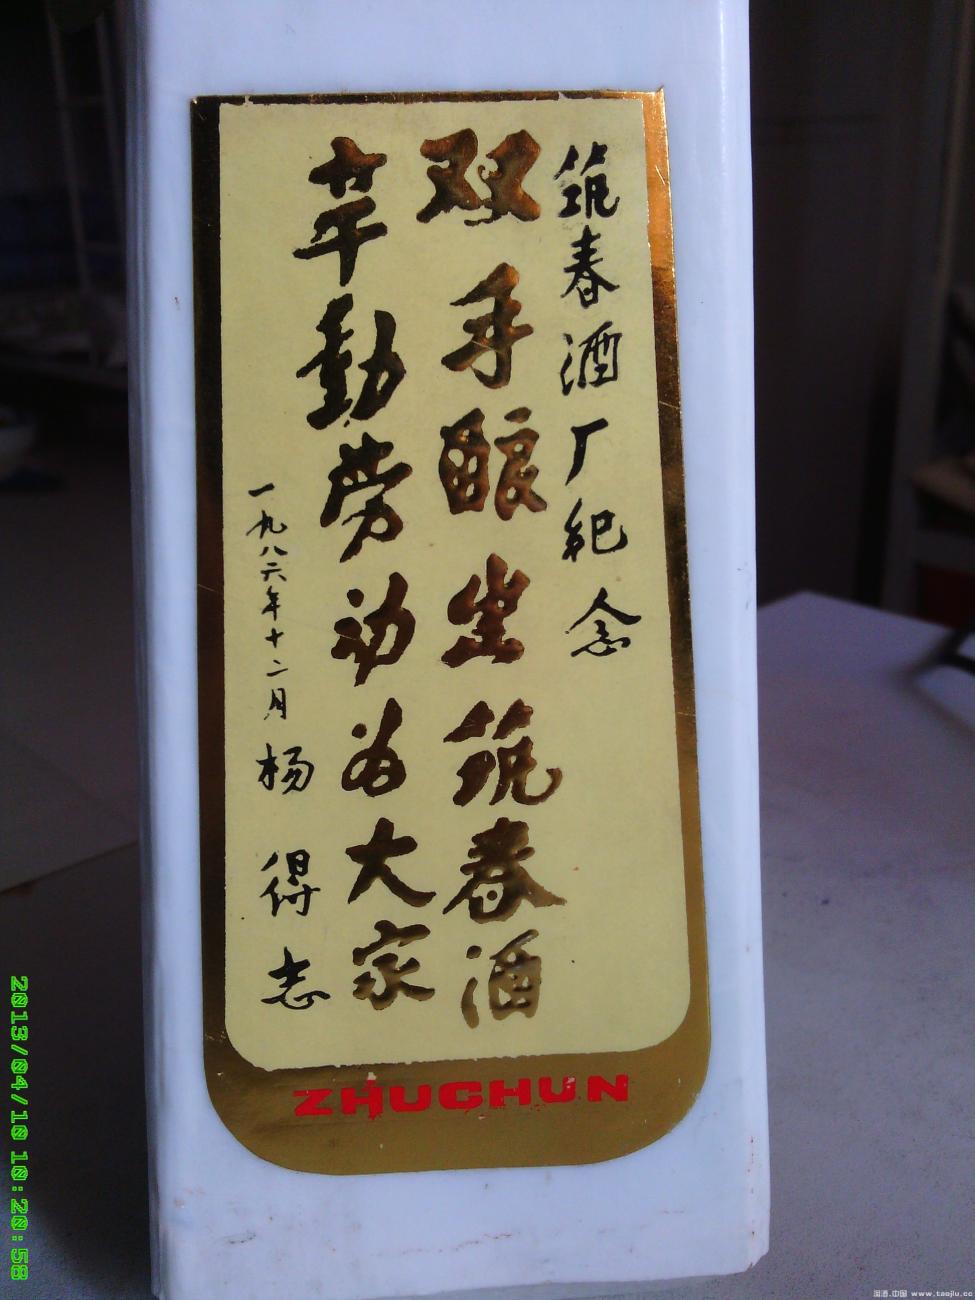 筑春酒厂纪念
双手酿出筑春酒
辛勤劳动为大家
一九八六年十二月 杨得志
ZHUCHUN
2013/04/10 10:20:58
国酒.中国 www.taojiu.cc